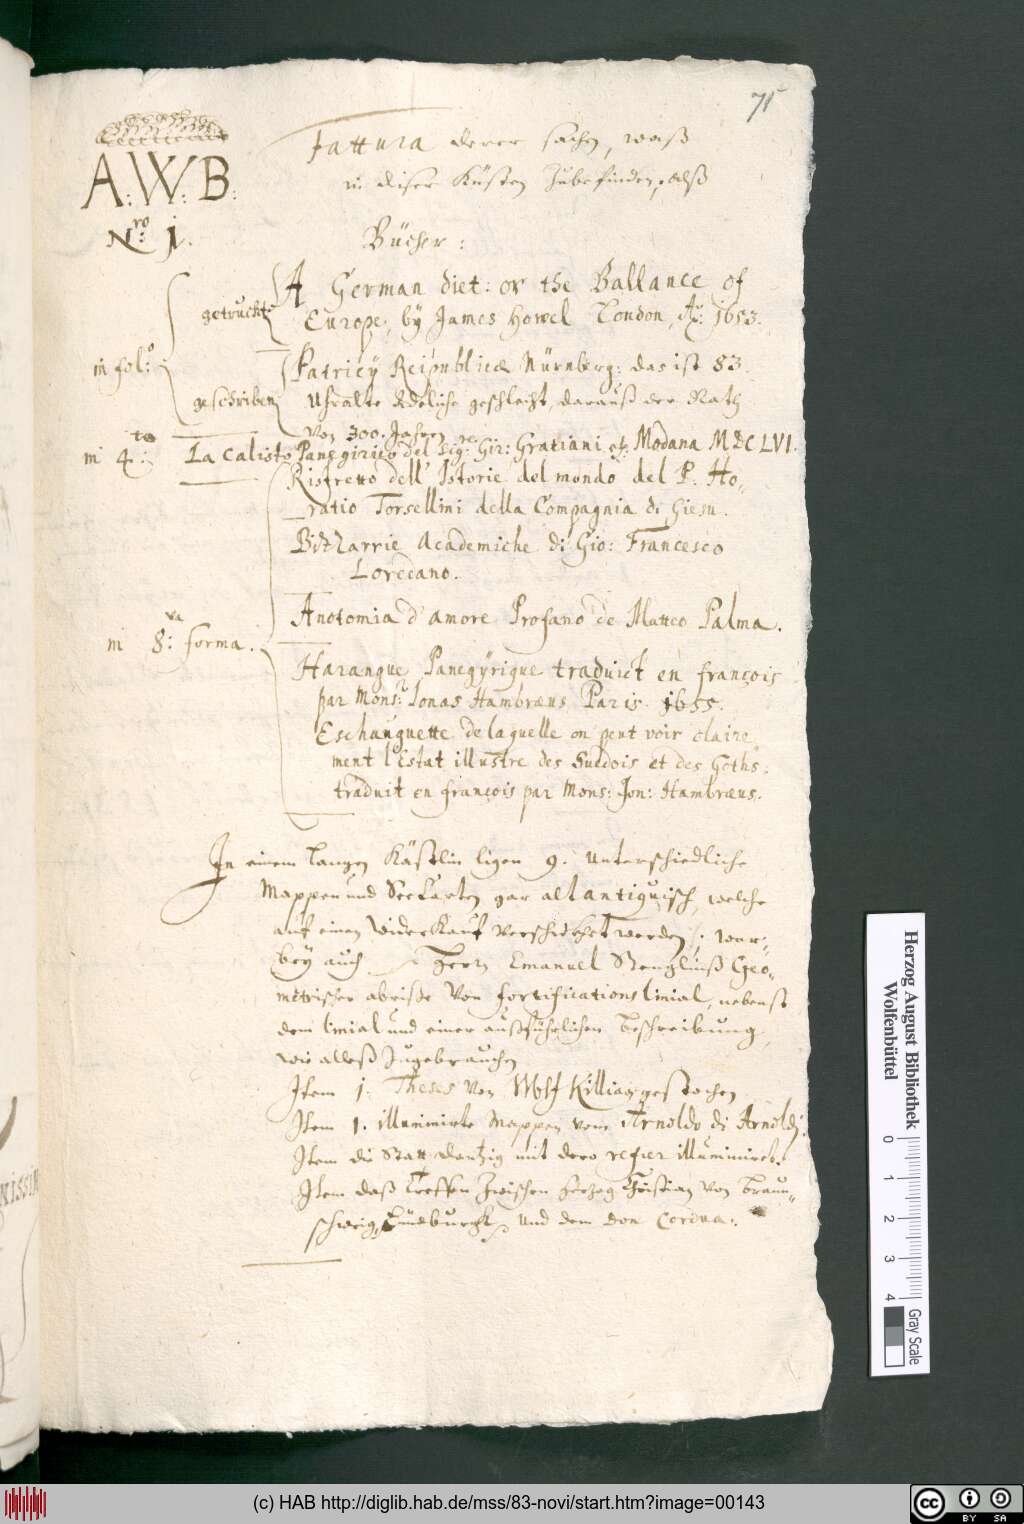 71
A: W: B:
Nro: 1.
Fattura derer sachen, waß
in diser Küsten zubefinden, alß
Bücher:
getruckt
A German diet: or the Ballance of
Europe, by James Howel London, Ao: 1653.
in folo:
geschriben
Patricÿ Reipublicæ Nürnberg: das ist 83.
Uhralte Adeliche geschlecht, darauß der Rath
Von 300. Jahren
in 4to:
La Calisto Panegirico del Sigre: Gir: Gratiani etc. Modana MDCLVI.
Ristretto dell' Istorie del mondo del P. Ho-
ratio Torsellini della Compagnia di Giesu.
Bizzarrie Academiche di Gio: Francesco
Loredano.
Anotomia d'amore Profano de Matteo Palma.
in 8va: forma.
Harangue Panegÿrique traduict en françois
par Monsr: Ionas Hambræus Paris. 1655.
Eschauguette de laquelle on peut voir claire
ment l'Estat illustre des Suedois et des Goths:
traduit en françois par Mons: Jon: Hambræus.
In einem langen Kästlin ligen 9. Unterschiedliche
Mappen und Seekarten gar alt antiquisch, welche
auf einen Widerkauf verschickhet werden; war-
beÿ auch Herrn Emanuel Stengliuß Geo-
metrischer abriße Von fortificationslinial, nebenst
dem linial und einer außführlichen beschreibung,
wie alleß zugebrauchen
Item 1. Theses von Wolf Killian gestochen
Item 1. illuminirte Mappen vom Arnoldo di Arnoldj.
Item die Statt Dantzig mit dero refier illuminiret.
Item daß Treffen zwischen Herzog Christian von Braun-
schweig, Lüneburgk und dem don Cordua.
Herzog August Bibliothek
Wolfenbüttel
0
1
2
3
4
Gray Scale
(c) HAB http://diglib.hab.de/mss/83-novi/start.htm?image=00143
cc
BY SA